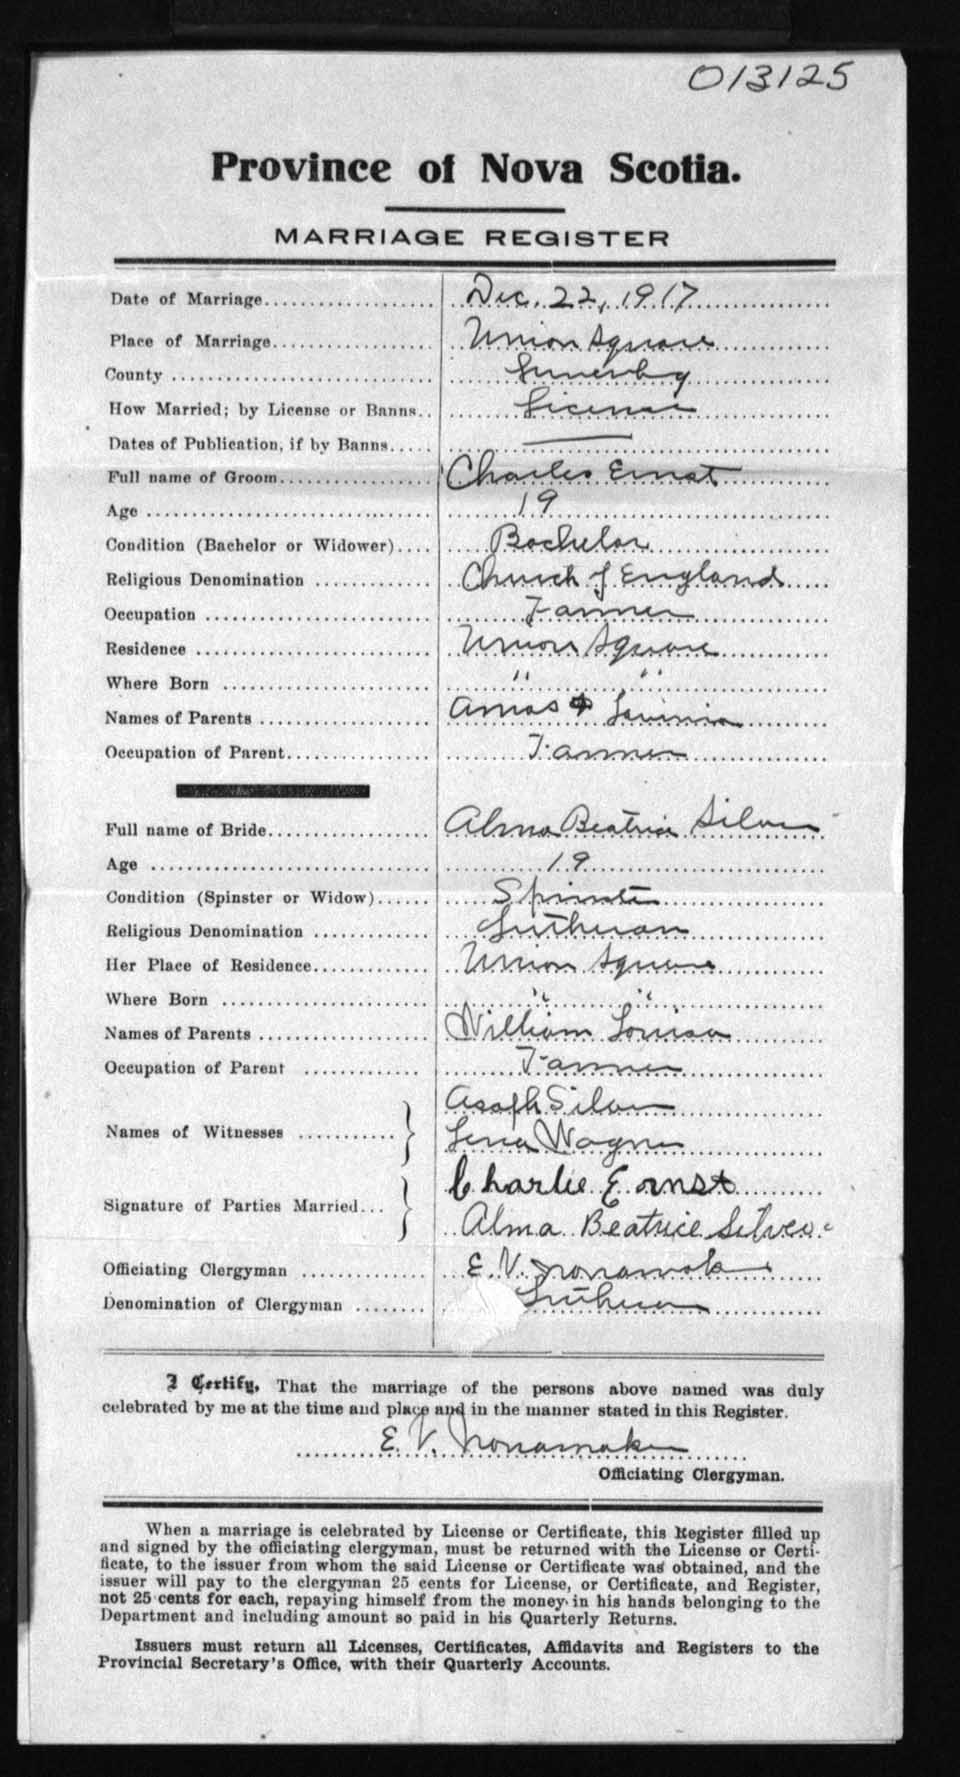 013125
Province of Nova Scotia.
MARRIAGE REGISTER
Date of Marriage Dec. 22, 1917
Place of Marriage Union Square
County Lunenburg
How Married; by License or Banns License
Dates of Publication, if by Banns —
Full name of Groom Charles Ernst
Age 19
Condition (Bachelor or Widower) Bachelor
Religious Denomination Church of England
Occupation Farmer
Residence Union Square
Where Born " "
Names of Parents Amos & Lavinia
Occupation of Parent Farmer
Full name of Bride Alma Beatrice Silver
Age 19
Condition (Spinster or Widow) Spinster
Religious Denomination Lutheran
Her Place of Residence Union Square
Where Born " "
Names of Parents William Louisa
Occupation of Parent Farmer
Names of Witnesses Asaph Silver
Lena Wagner
Signature of Parties Married Charlie Ernst
Alma Beatrice Silver
Officiating Clergyman E. V. Nonamaker
Denomination of Clergyman Lutheran
I Certify, That the marriage of the persons above named was duly
celebrated by me at the time and place and in the manner stated in this Register.
E. V. Nonamaker
Officiating Clergyman.
When a marriage is celebrated by License or Certificate, this Register filled up
and signed by the officiating clergyman, must be returned with the License or Certi-
ficate, to the issuer from whom the said License or Certificate was obtained, and the
issuer will pay to the clergyman 25 cents for License, or Certificate, and Register,
not 25 cents for each, repaying himself from the money in his hands belonging to the
Department and including amount so paid in his Quarterly Returns.
Issuers must return all Licenses, Certificates, Affidavits and Registers to the
Provincial Secretary's Office, with their Quarterly Accounts.